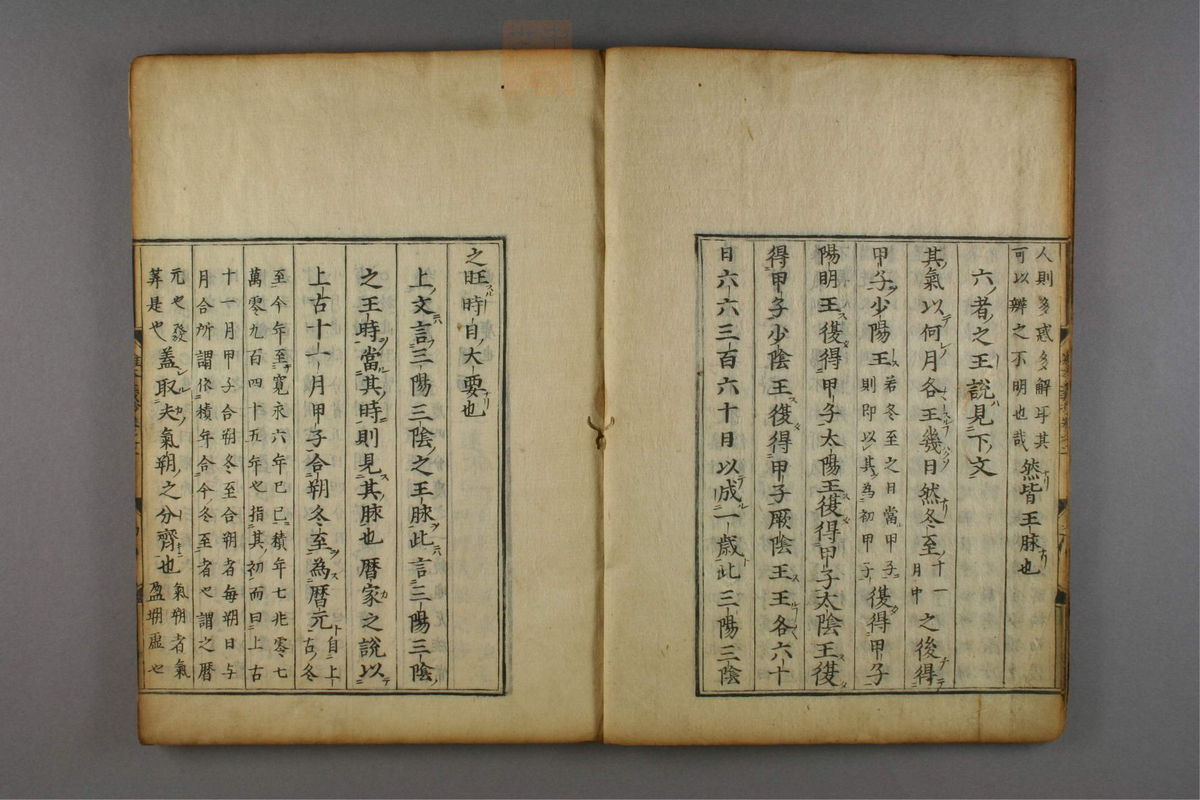 人則多惑多解耳其
可以辨之不明也哉
然皆王脉也
六者之王說見下文
其氣以何月各王幾日然冬至十一
月中
之後得
甲子少陽王
若冬至之日當甲子
則即以其為初甲子
復得甲子
陽明王復得甲子太陽王復得甲子太陰王復
得甲子少陰王復得甲子厥陰王王各六十
日六六三百六十日以成一歲此三陽三陰
之旺時日大要也
上文言三陽三陰之王脉此言三陽三陰
之王時當其時則見其脉也曆家之說以
上古十一月甲子合朔冬至為曆元
自上
古冬
至今年至寬永六年己巳積年七兆零七
萬零九百四十五年也指其初而曰上古
十一月甲子合朔冬至合朔者每朔日与
月合所謂依積年合今冬至者也謂之曆
元也發
筭是也
蓋取夫氣朔之分齊也
氣朔者氣
盈朔虛也